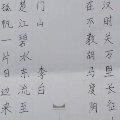 汉时关万里长征
在不教胡马度阴
门山 李白
楚江碧水东流至
孤帆一片日边来